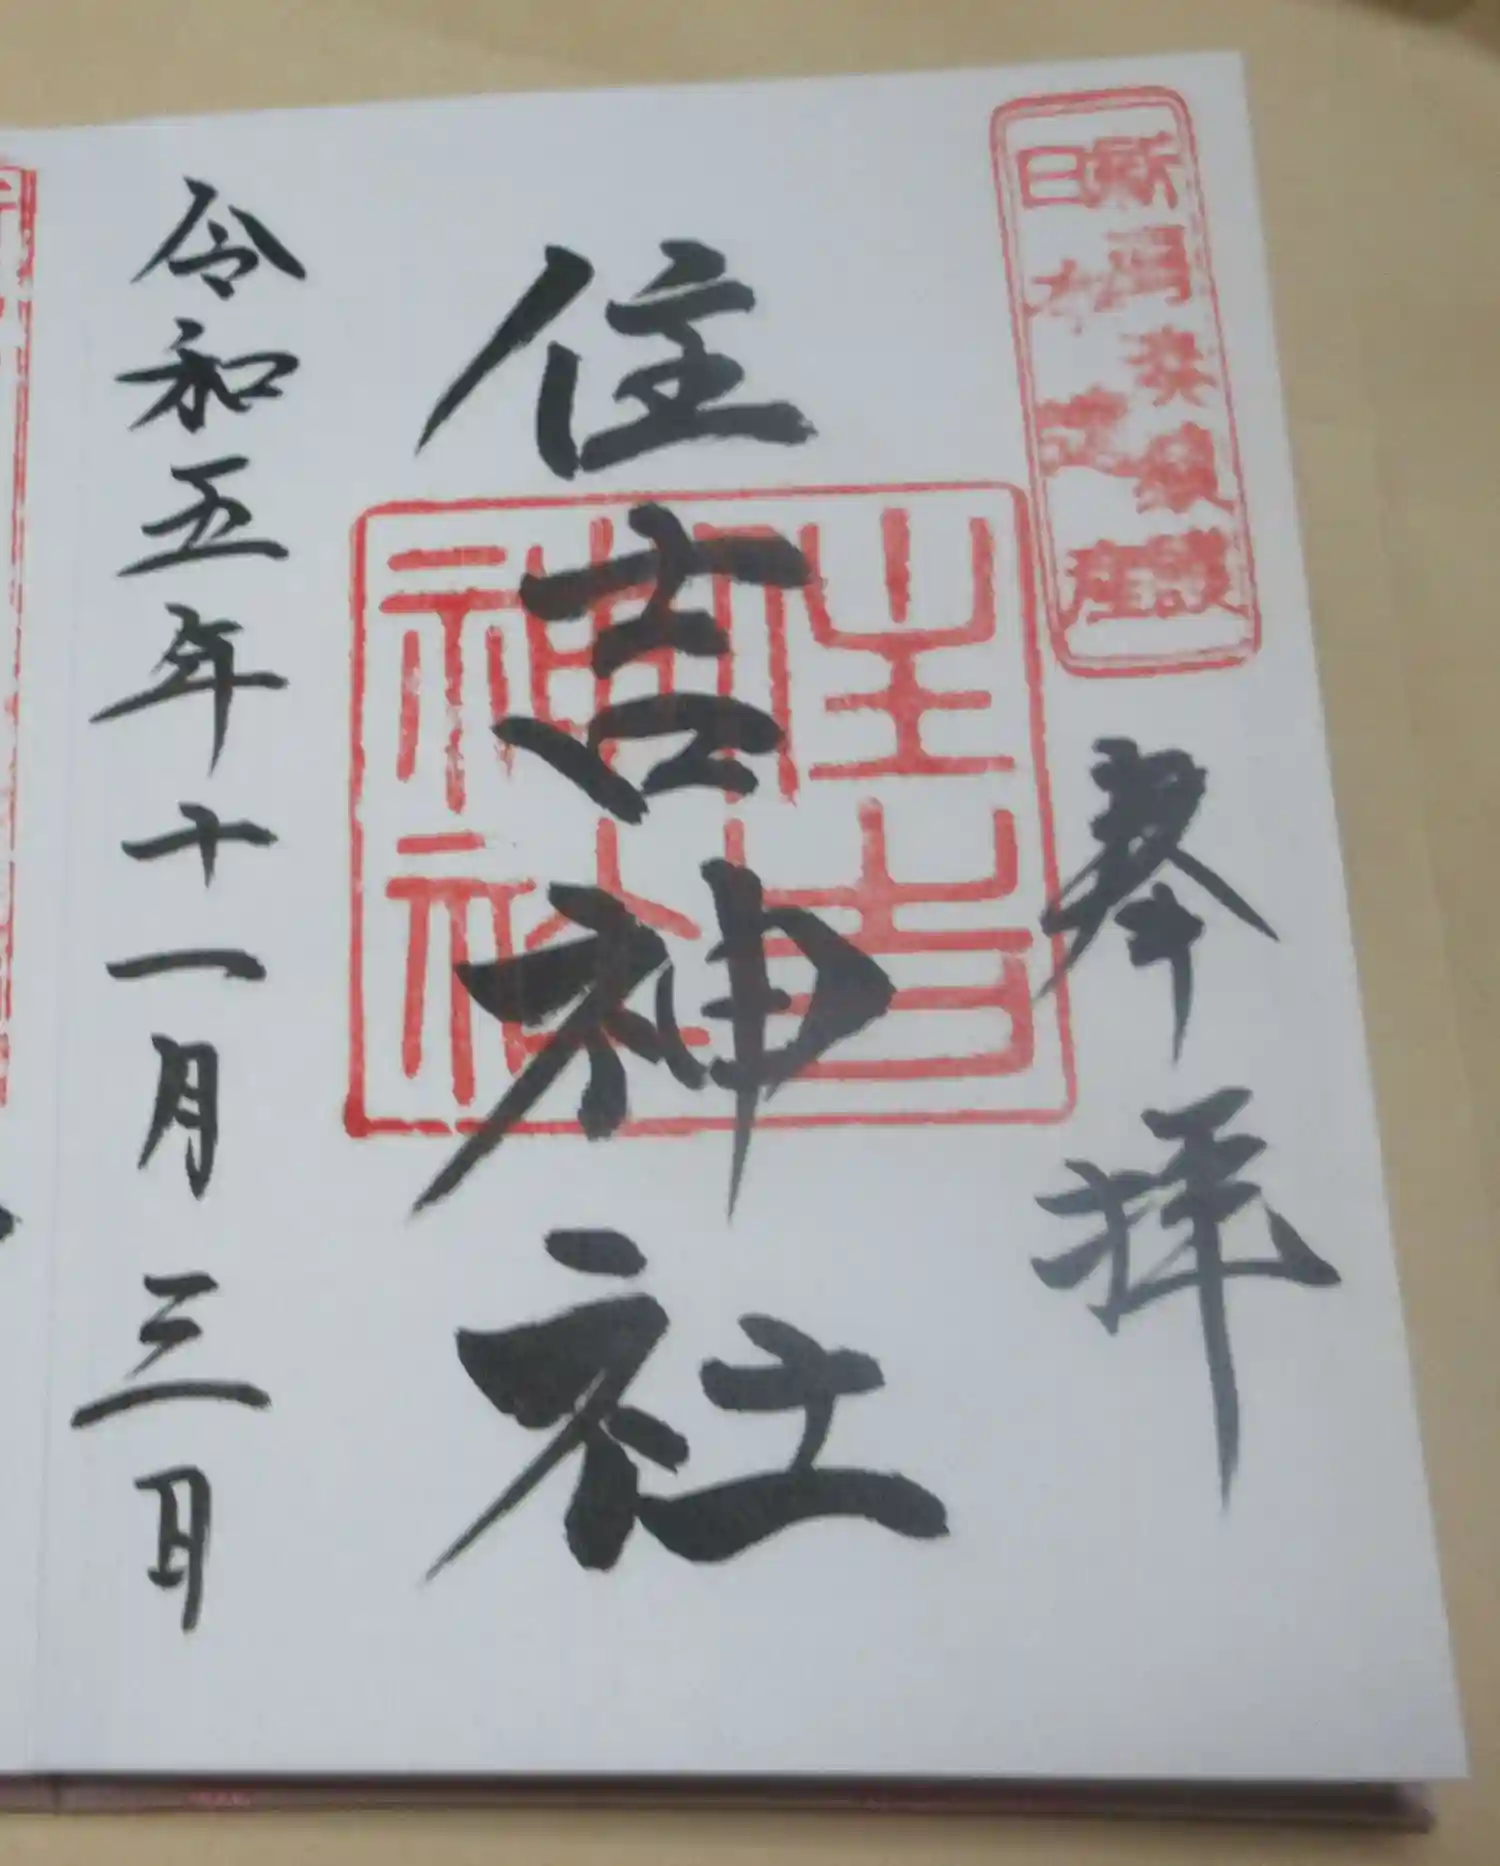 新潟湊鎮護
日本遺産
奉拝
住吉神社
住吉
神社
令和五年十一月三日